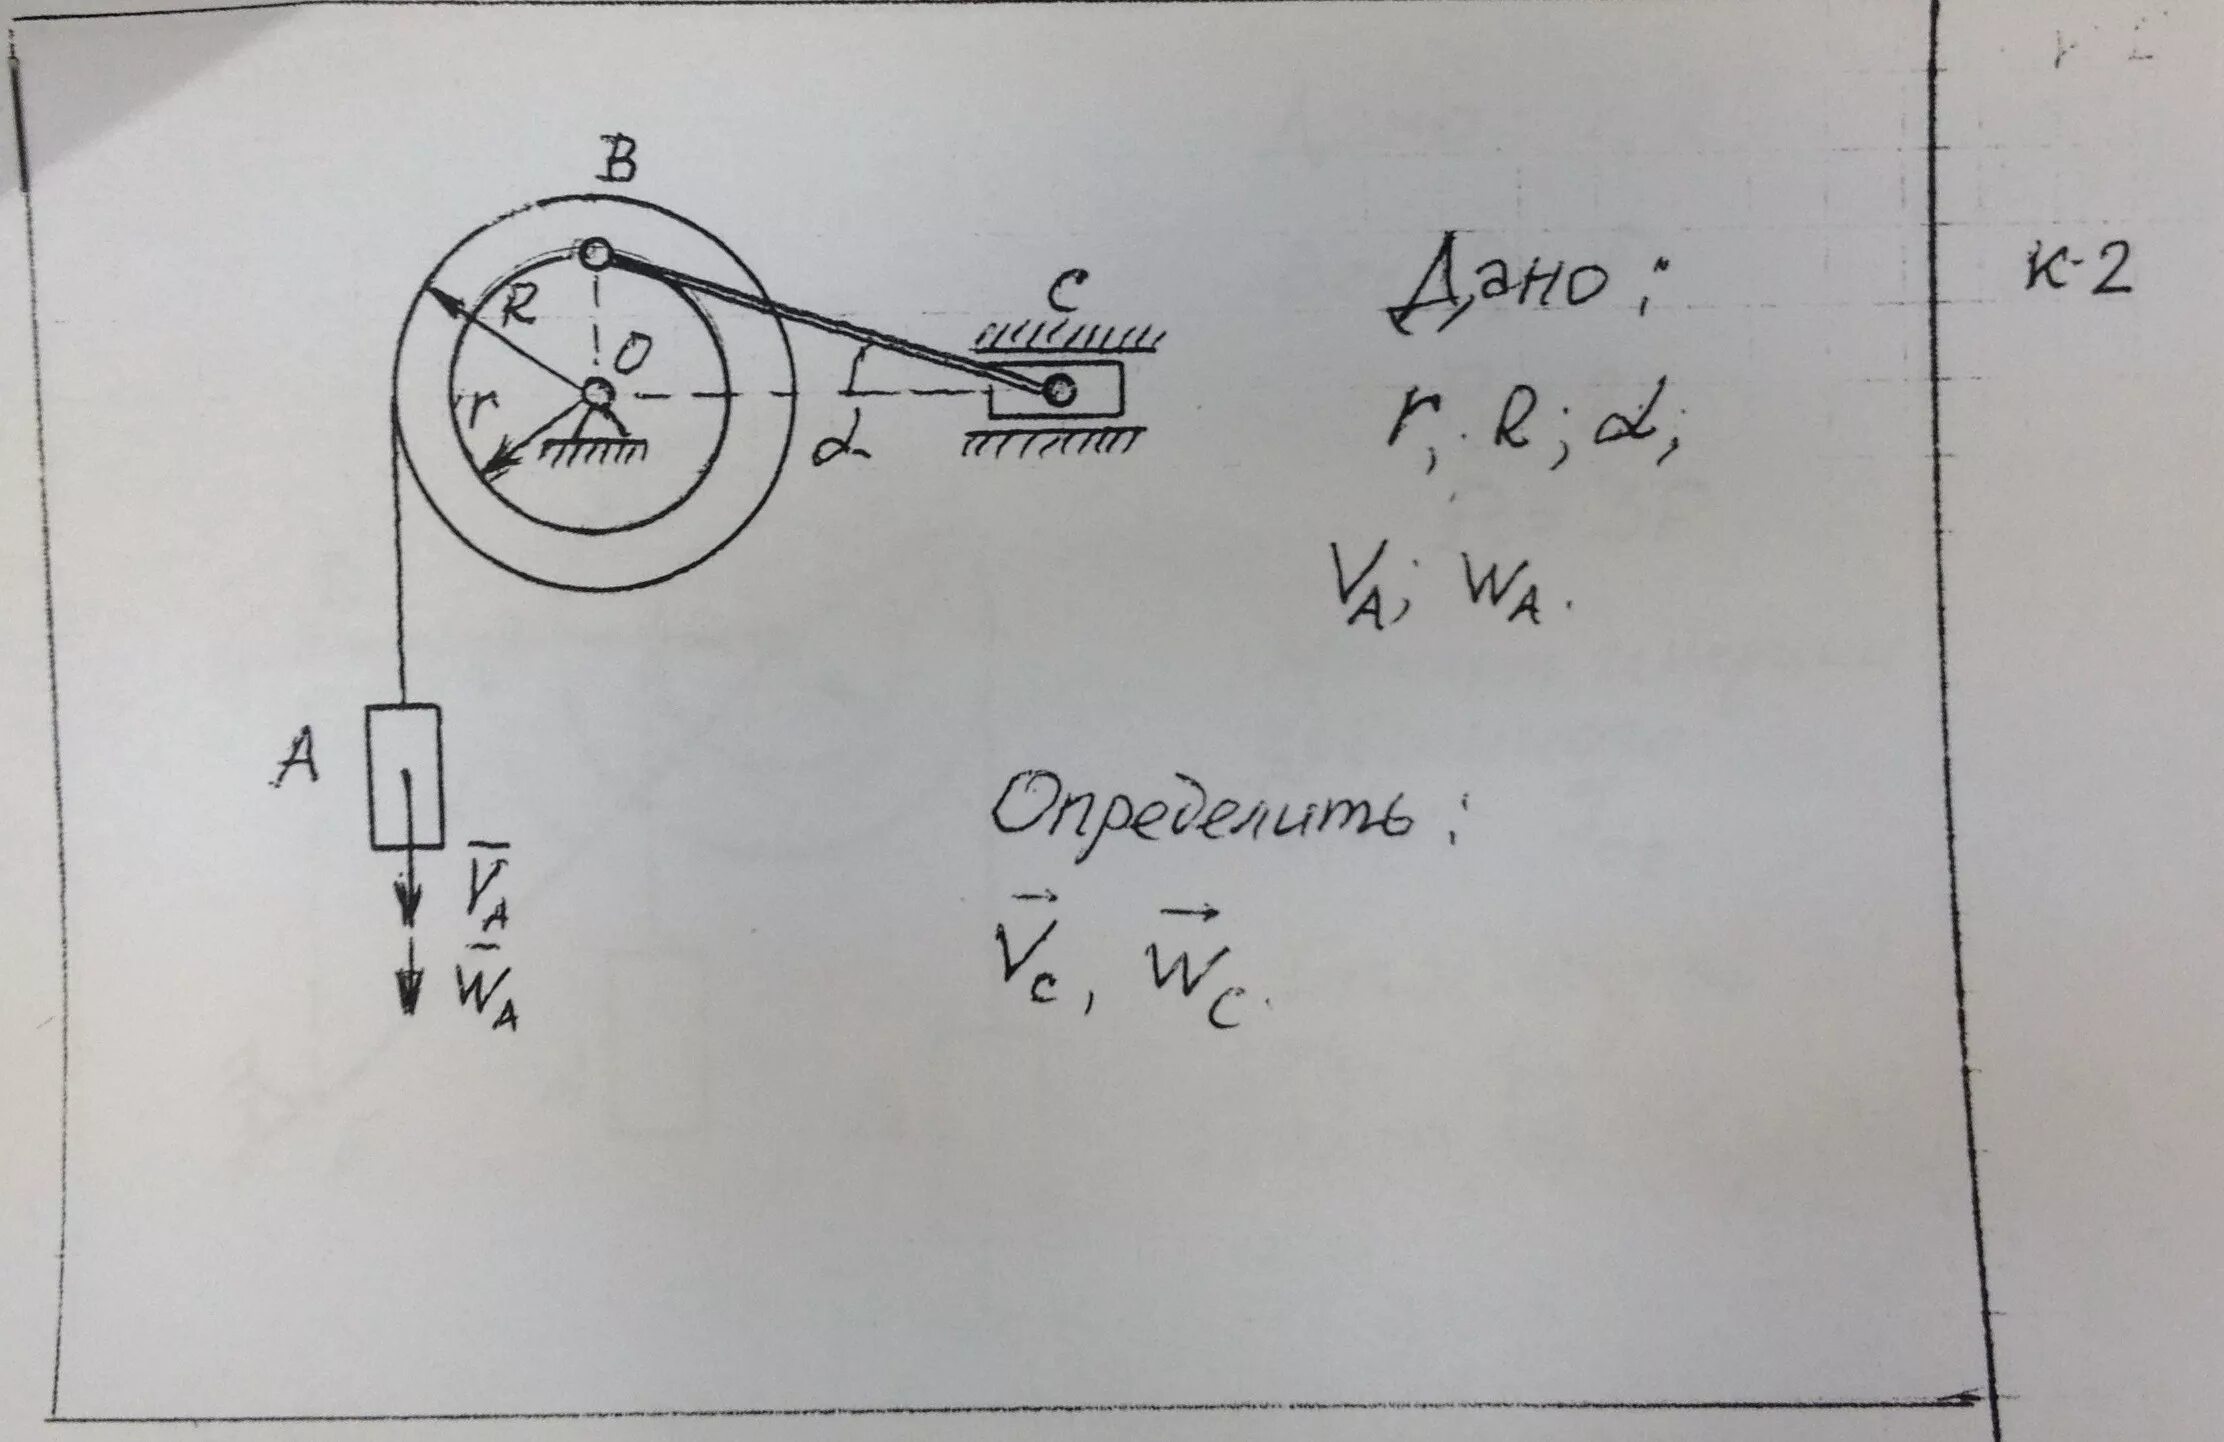 B
R
O
r
C
α
A
V̅A
W̅A
Дано:
r, R; α;
VA; WA.
Определить:
V⃗C, W⃗C.
К-2